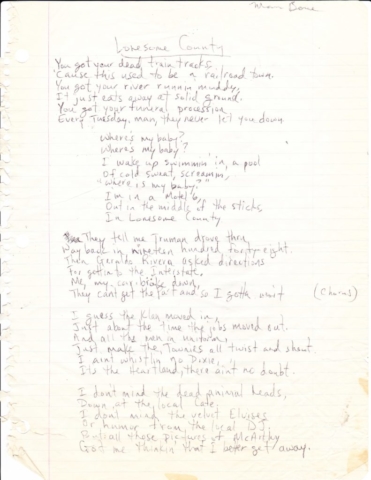 Lonesome County
You got your dead train tracks
'Cause this used to be a railroad town.
You got your river runnin muddy,
It just eats away at solid ground.
You got your funeral procession,
Every Tuesday, man, they never let you down
Where's my baby?
Where's my baby?
I wake up swimmin' in a pool
Of cold sweat, screamin,
"Where is my baby?"
I'm in a Motel 6,
Out in the middle of the sticks,
In Lonesome County
They tell me Truman drove thru,
Way back in nineteen hundred forty-eight.
Then Geraldo Rivera asked directions
For gettin to the Interstate.
Me, my car broke down,
They cant get the part and so I gotta wait
(Chorus)
I guess the Klan moved in,
Just about the time the jobs moved out.
And all the men in uniform,
Just make the Townies all twist and shout.
I aint whistlin go Dixie,
Its the Heartland, there aint no doubt.
I don't mind the dead animal heads,
Down at the local cafe.
I dont mind the velvet Elvises
Or humor from the local DJ.
all those pictures of McArthy
Got me thinkin that I beter get away.